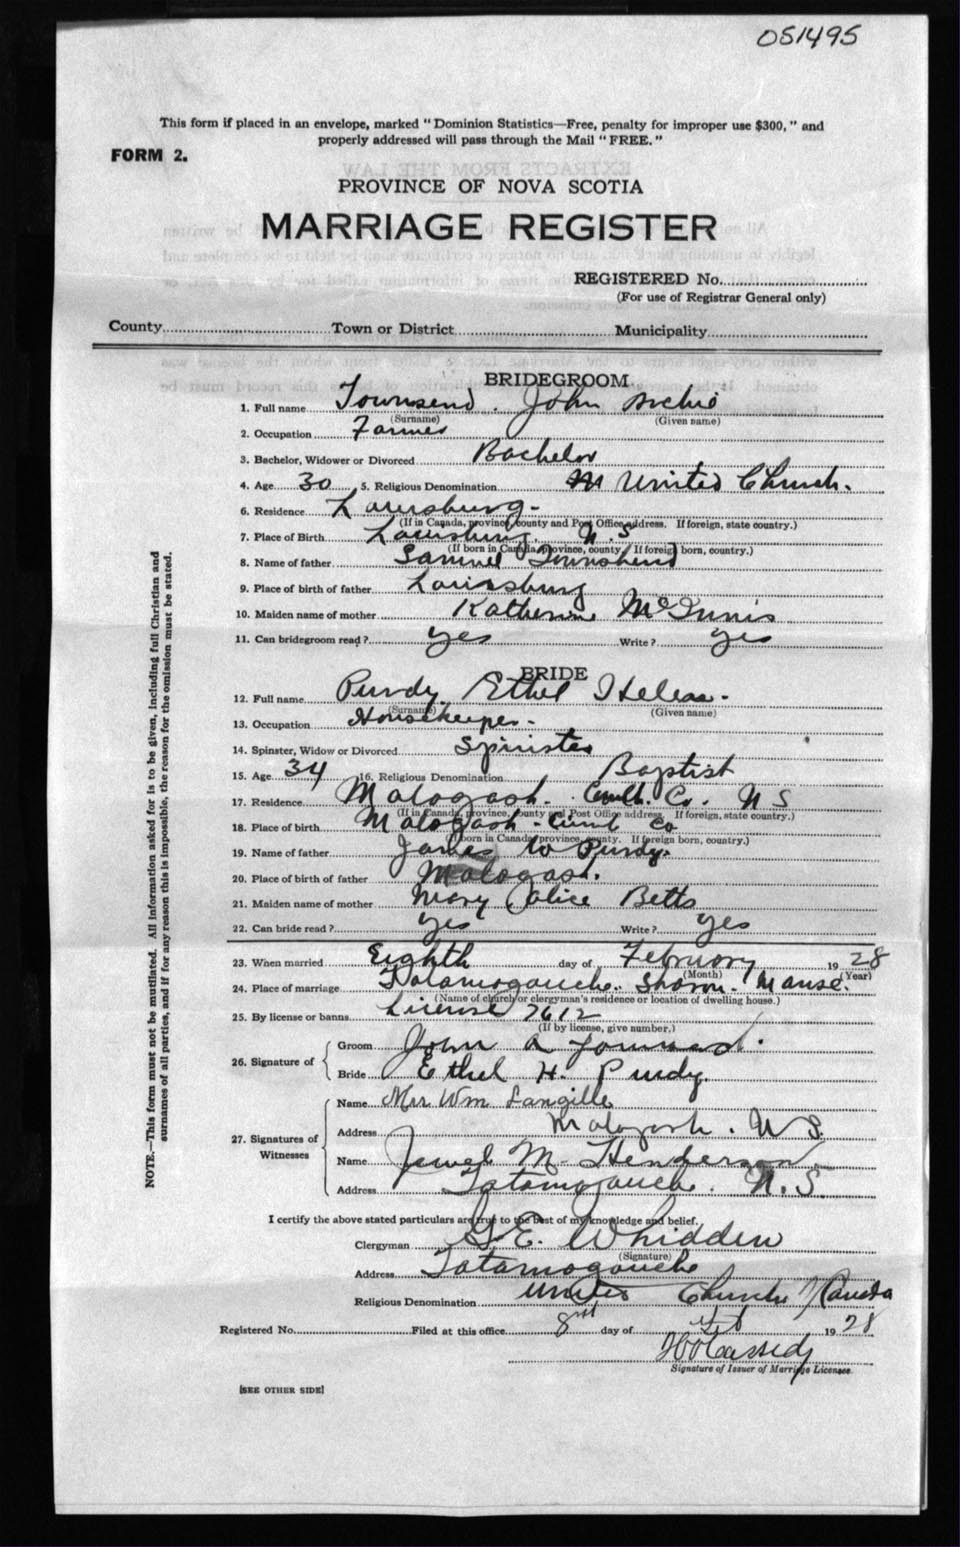 051495
This form if placed in an envelope, marked " Dominion Statistics—Free, penalty for improper use $300, " and
properly addressed will pass through the Mail " FREE. "
FORM 2.
PROVINCE OF NOVA SCOTIA
MARRIAGE REGISTER
REGISTERED No.
(For use of Registrar General only)
County Town or District Municipality
BRIDEGROOM
1. Full name Townsend. John Archie
(Surname) (Given name)
2. Occupation Farmer
3. Bachelor, Widower or Divorced Bachelor
4. Age 30 5. Religious Denomination United Church.
6. Residence Louisburg.
(If in Canada, province, county and Post Office address. If foreign, state country.)
7. Place of Birth Louisburg. N.S
(If born in Canada, province, county. If foreign born, country.)
8. Name of father Samuel Townshend
9. Place of birth of father Louisburg
10. Maiden name of mother Katherine McInnis
11. Can bridegroom read? yes Write? yes
BRIDE
12. Full name Purdy Ethel Helena.
(Surname) (Given name)
13. Occupation Housekeeper.
14. Spinster, Widow or Divorced Spinster
15. Age 34 16. Religious Denomination Baptist
17. Residence Malagash. Cumb. Co. N S
(If in Canada, province, county and Post Office address. If foreign, state country.)
18. Place of birth Malagash. Cumb Co
(If born in Canada, province, county. If foreign born, country.)
19. Name of father James W Purdy.
20. Place of birth of father Malagash.
21. Maiden name of mother Mary Alice Betts
22. Can bride read? yes Write? yes
23. When married Eighth day of February 1928
(Month) (Year)
24. Place of marriage Tatamagouche. Sharon. Manse.
(Name of church or clergyman's residence or location of dwelling house.)
25. By license or banns License 7612
(If by license, give number.)
26. Signature of Groom John A Townsend.
Bride Ethel H. Purdy.
27. Signatures of Witnesses
Name Mrs Wm Langille
Address Malagash. N.S.
Name Jewel M. Henderson
Address Tatamagouche. N.S.
I certify the above stated particulars are true to the best of my knowledge and belief.
Clergyman G.E. Whidden
(Signature)
Address Tatamagouche
Religious Denomination United Church of Canada
Registered No. Filed at this office 8th day of Feb 1928
Cassidy
Signature of Issuer of Marriage Licenses.
[SEE OTHER SIDE]
NOTE.—This form must not be mutilated. All information asked for is to be given, including full Christian and
surnames of all parties, and if for any reason this is impossible, the reason for the omission must be stated.